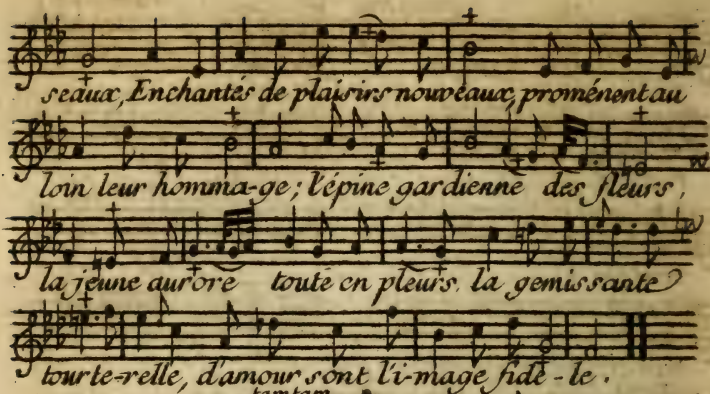 seaux, Enchantés de plaisirs nouveaux, proménent au
loin leur homma-ge; l'épine gardienne des fleurs,
la jeune aurore toute en pleurs, la gemissante
tourte-relle, d'amour sont l'i-mage fidé-le.
tamtam